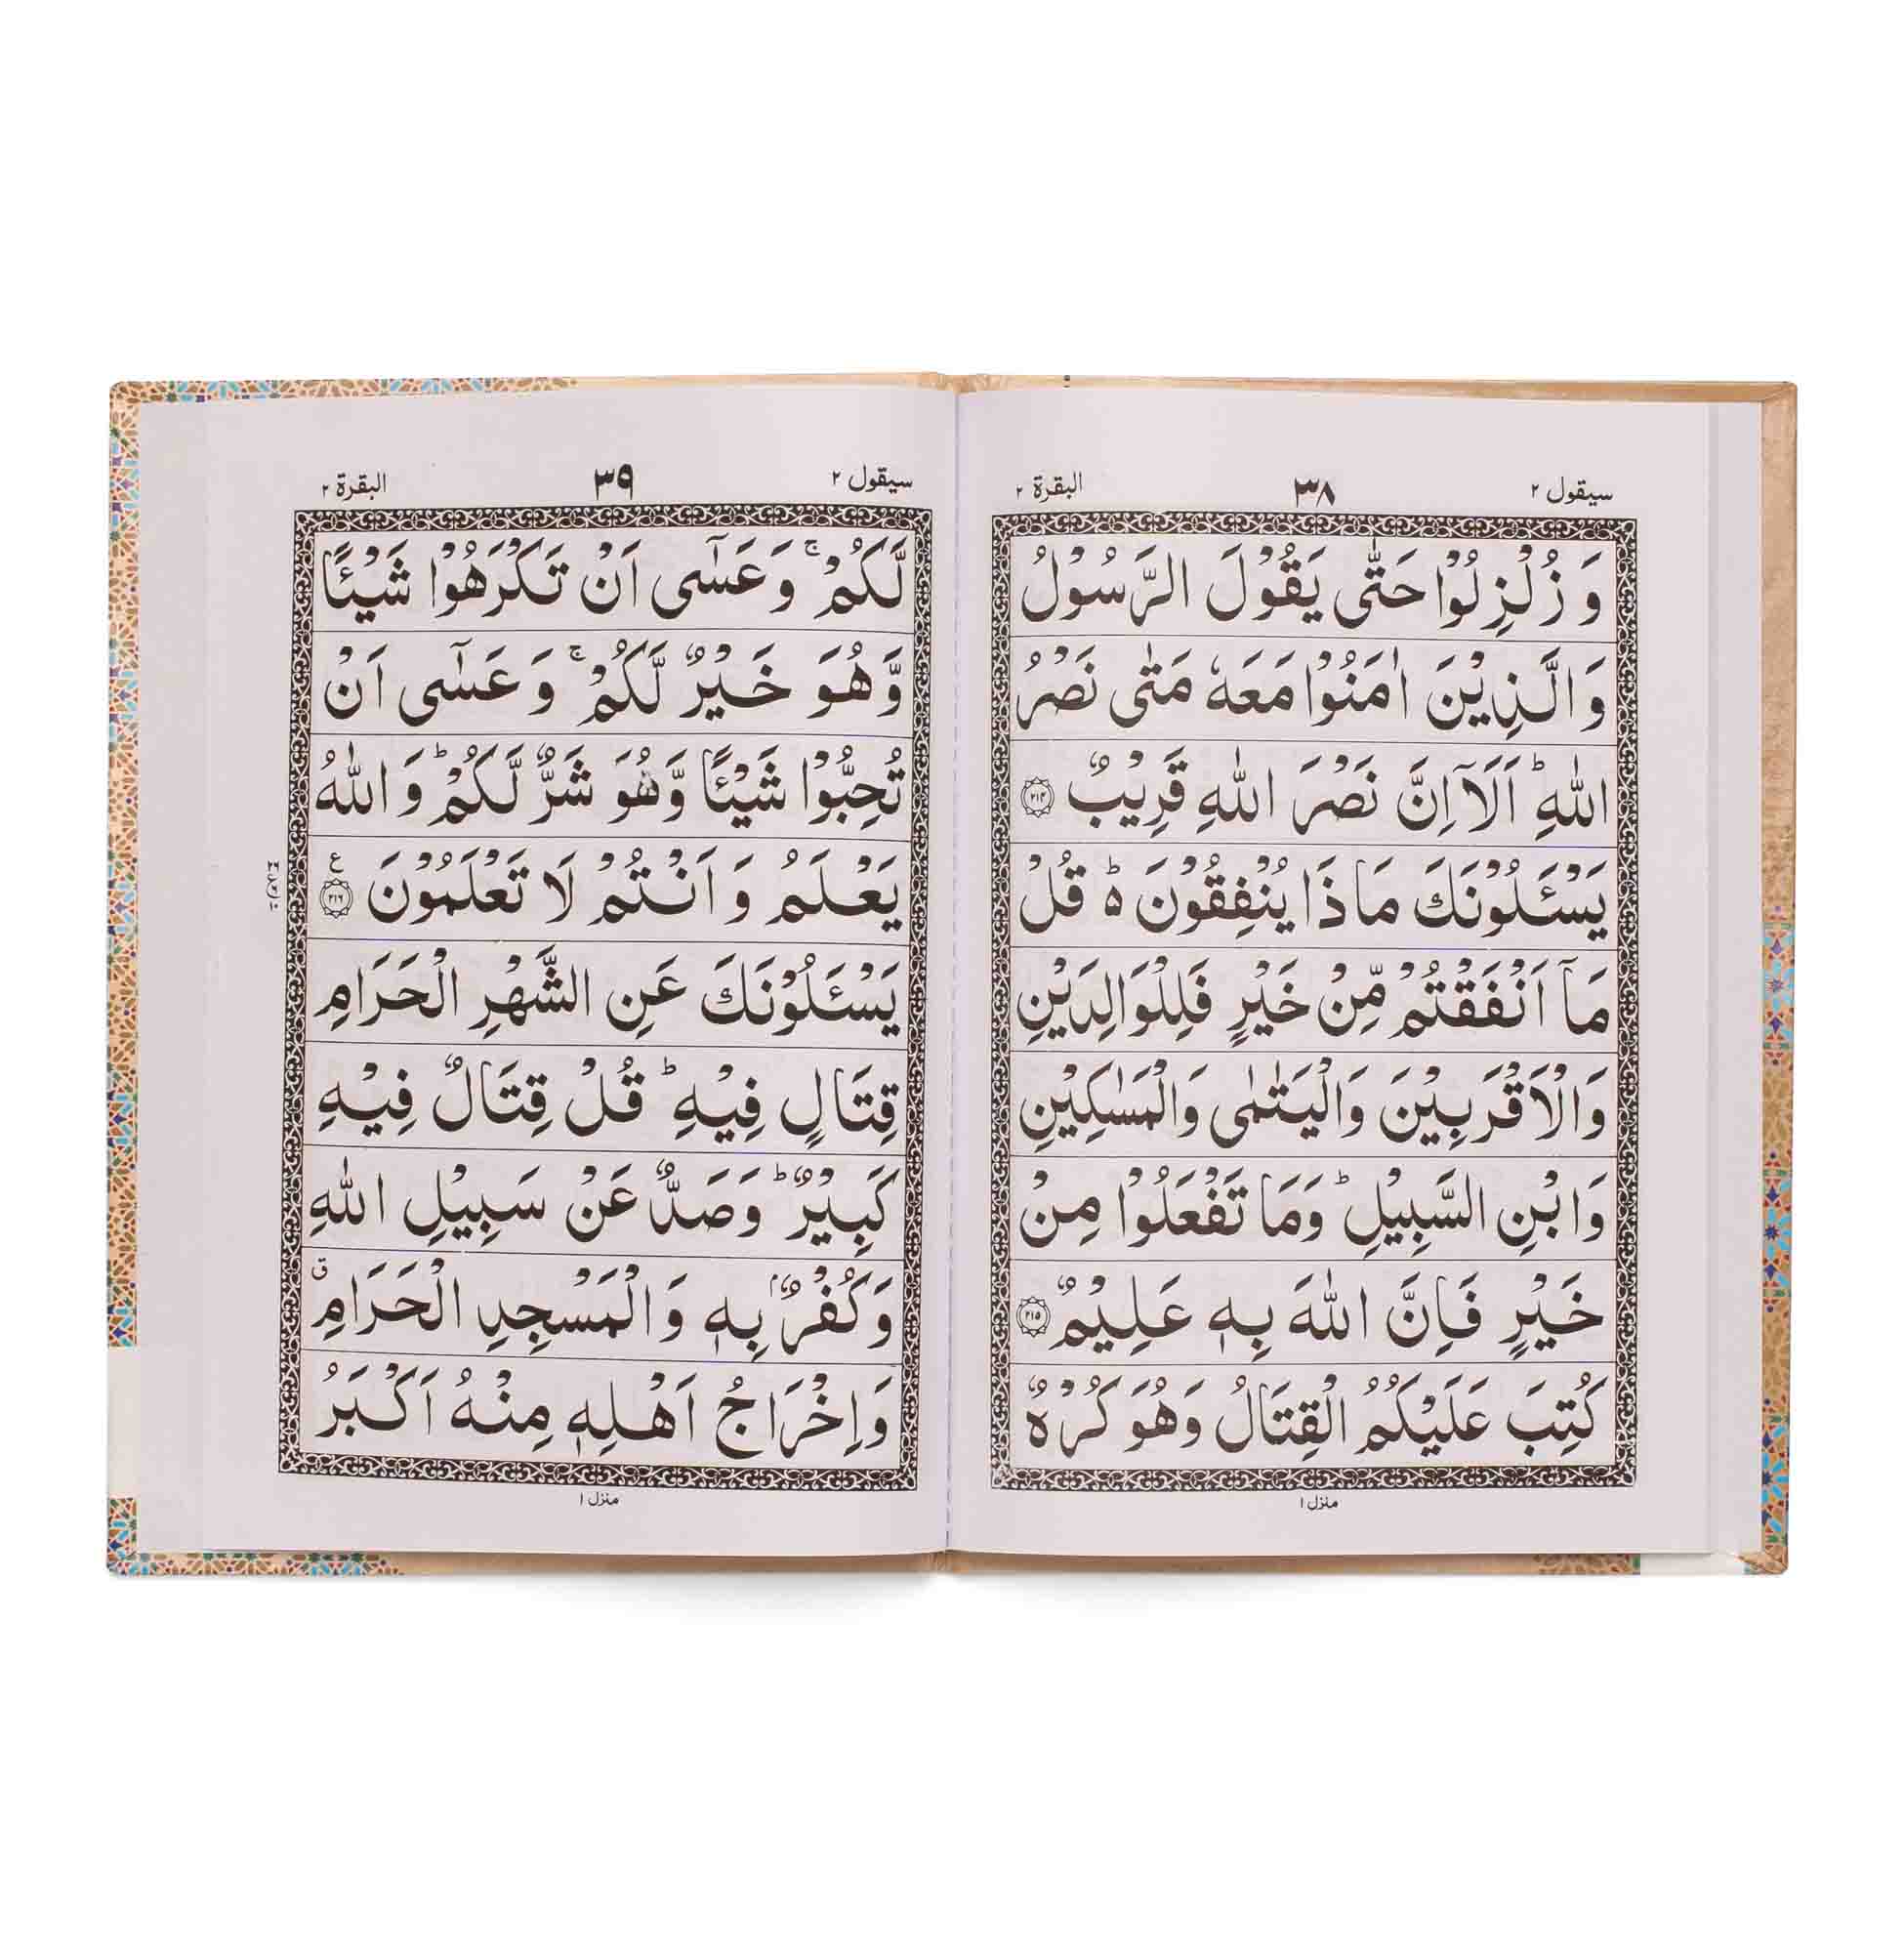 سيقول ٢
٣٨
البقرة ٢
وَ زُلْزِلُوْا حَتّٰى يَقُوْلَ الرَّسُوْلُ
وَالَّذِيْنَ اٰمَنُوْا مَعَهٗ مَتٰى نَصْرُ
اللّٰهِؕ اَلَاۤ اِنَّ نَصْرَ اللّٰهِ قَرِيْبٌ ۝۲۱۴
يَسْـَٔلُوْنَكَ مَاذَا يُنْفِقُوْنَ ؕ قُلْ
مَاۤ اَنْفَقْتُمْ مِّنْ خَيْرٍ فَلِلْوَالِدَيْنِ
وَالْاَقْرَبِيْنَ وَالْيَتٰمٰى وَالْمَسٰكِيْنِ
وَابْنِ السَّبِيْلِؕ وَمَا تَفْعَلُوْا مِنْ
خَيْرٍ فَاِنَّ اللّٰهَ بِهٖ عَلِيْمٌ ۝۲۱۵
كُتِبَ عَلَيْكُمُ الْقِتَالُ وَهُوَ كُرْهٌ
منزل ١
سيقول ٢
٣٩
البقرة ٢
لَّكُمْۚ وَعَسٰۤى اَنْ تَكْرَهُوْا شَيْـًٔا
وَّهُوَ خَيْرٌ لَّكُمْۚ وَعَسٰۤى اَنْ
تُحِبُّوْا شَيْـًٔا وَّهُوَ شَرٌّ لَّكُمْؕ وَاللّٰهُ
يَعْلَمُ وَاَنْتُمْ لَا تَعْلَمُوْنَ ۝۲۱۶ ع
يَسْـَٔلُوْنَكَ عَنِ الشَّهْرِ الْحَرَامِ
قِتَالٍ فِيْهِؕ قُلْ قِتَالٌ فِيْهِ
كَبِيْرٌؕ وَصَدٌّ عَنْ سَبِيْلِ اللّٰهِ
وَكُفْرٌۢ بِهٖ وَالْمَسْجِدِ الْحَرَامِ ق
وَاِخْرَاجُ اَهْلِهٖ مِنْهُ اَكْبَرُ
منزل ١